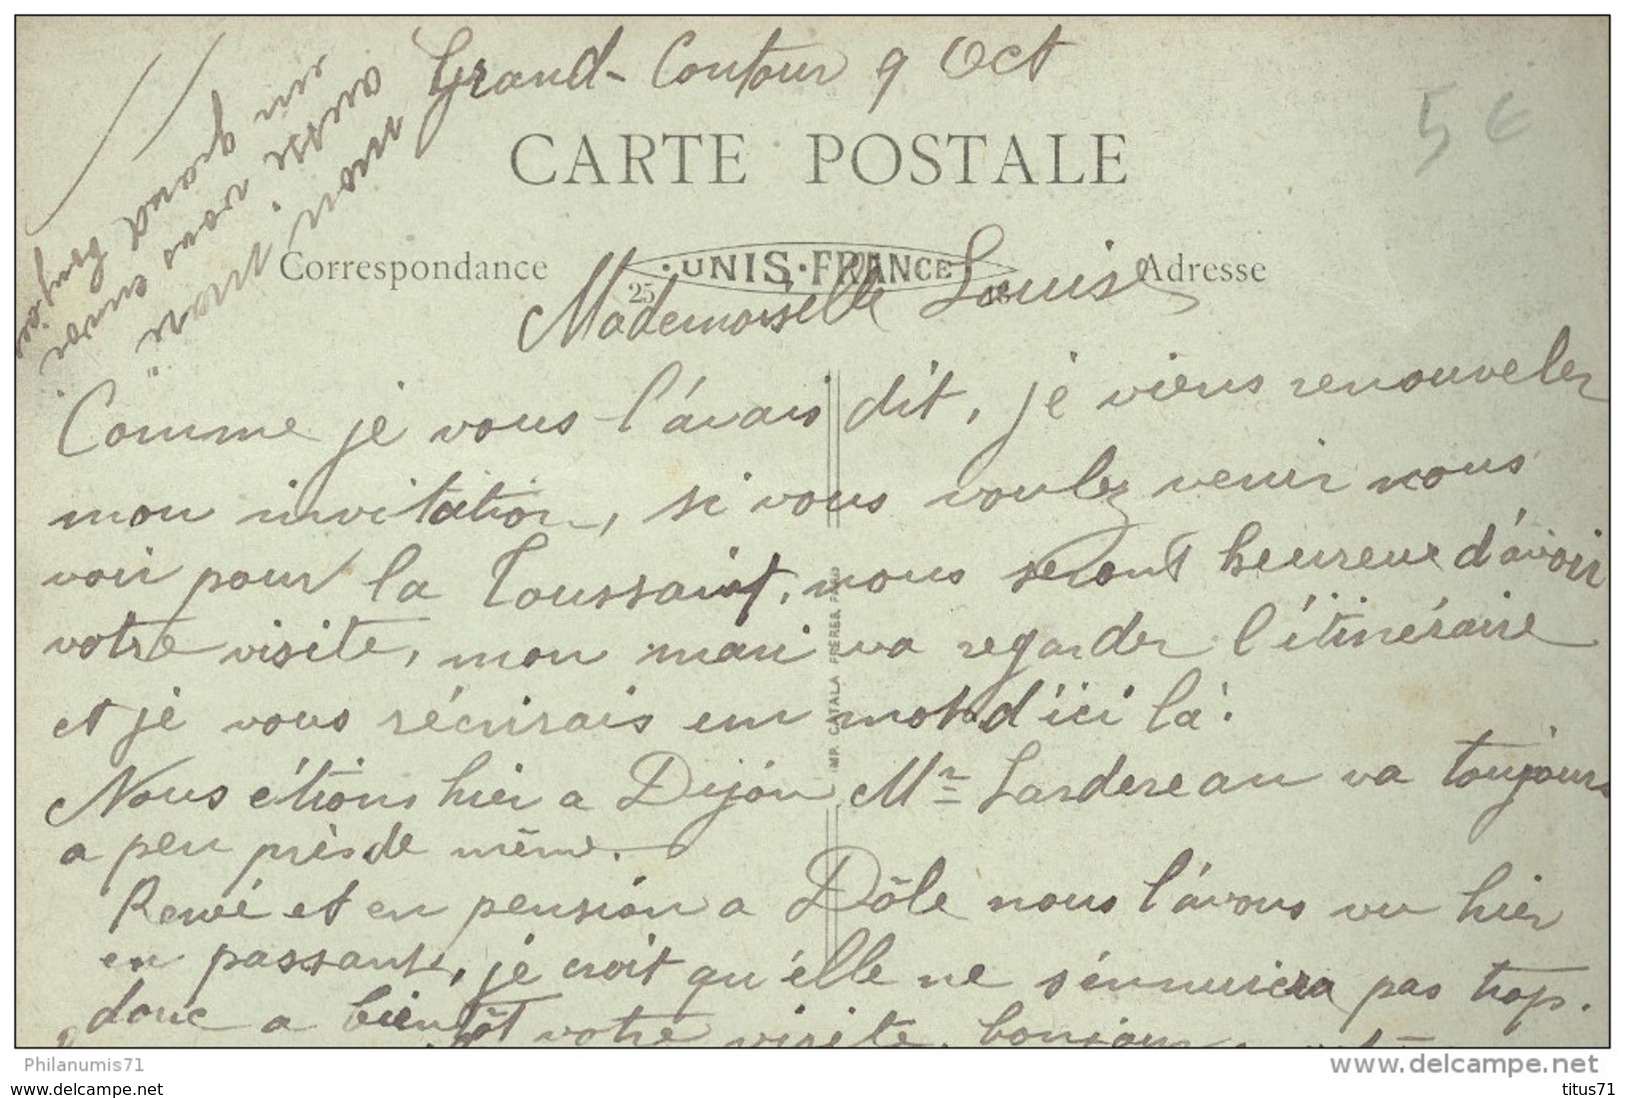 Grand-Contour 9 Oct
5 €
CARTE POSTALE
Correspondance
UNIS-FRANCE
Adresse
25
Mademoiselle Louise
Comme je vous l'avais dit, je viens renouveler
mon invitation, si vous voulez venir nous
voir pour la Toussaint, nous seront heureux d'avoir
votre visite, mon mari va regarder l'itinéraire
et je vous récrirais un mot d'ici là.
Nous étions hier a Dijon Mr Lardereau va toujours
a peu près de même.
René et en pension a Dôle nous l'avons vu hier
en passant, je croit qu'elle ne s'ennuiera pas trop.
donc a bientôt votre visite, bonjour
IMP. CATALA FRERES PARIS
un grand bonjour
nous tous
Philanumis71
www.delcampe.net
www.delcampe.net
titus71